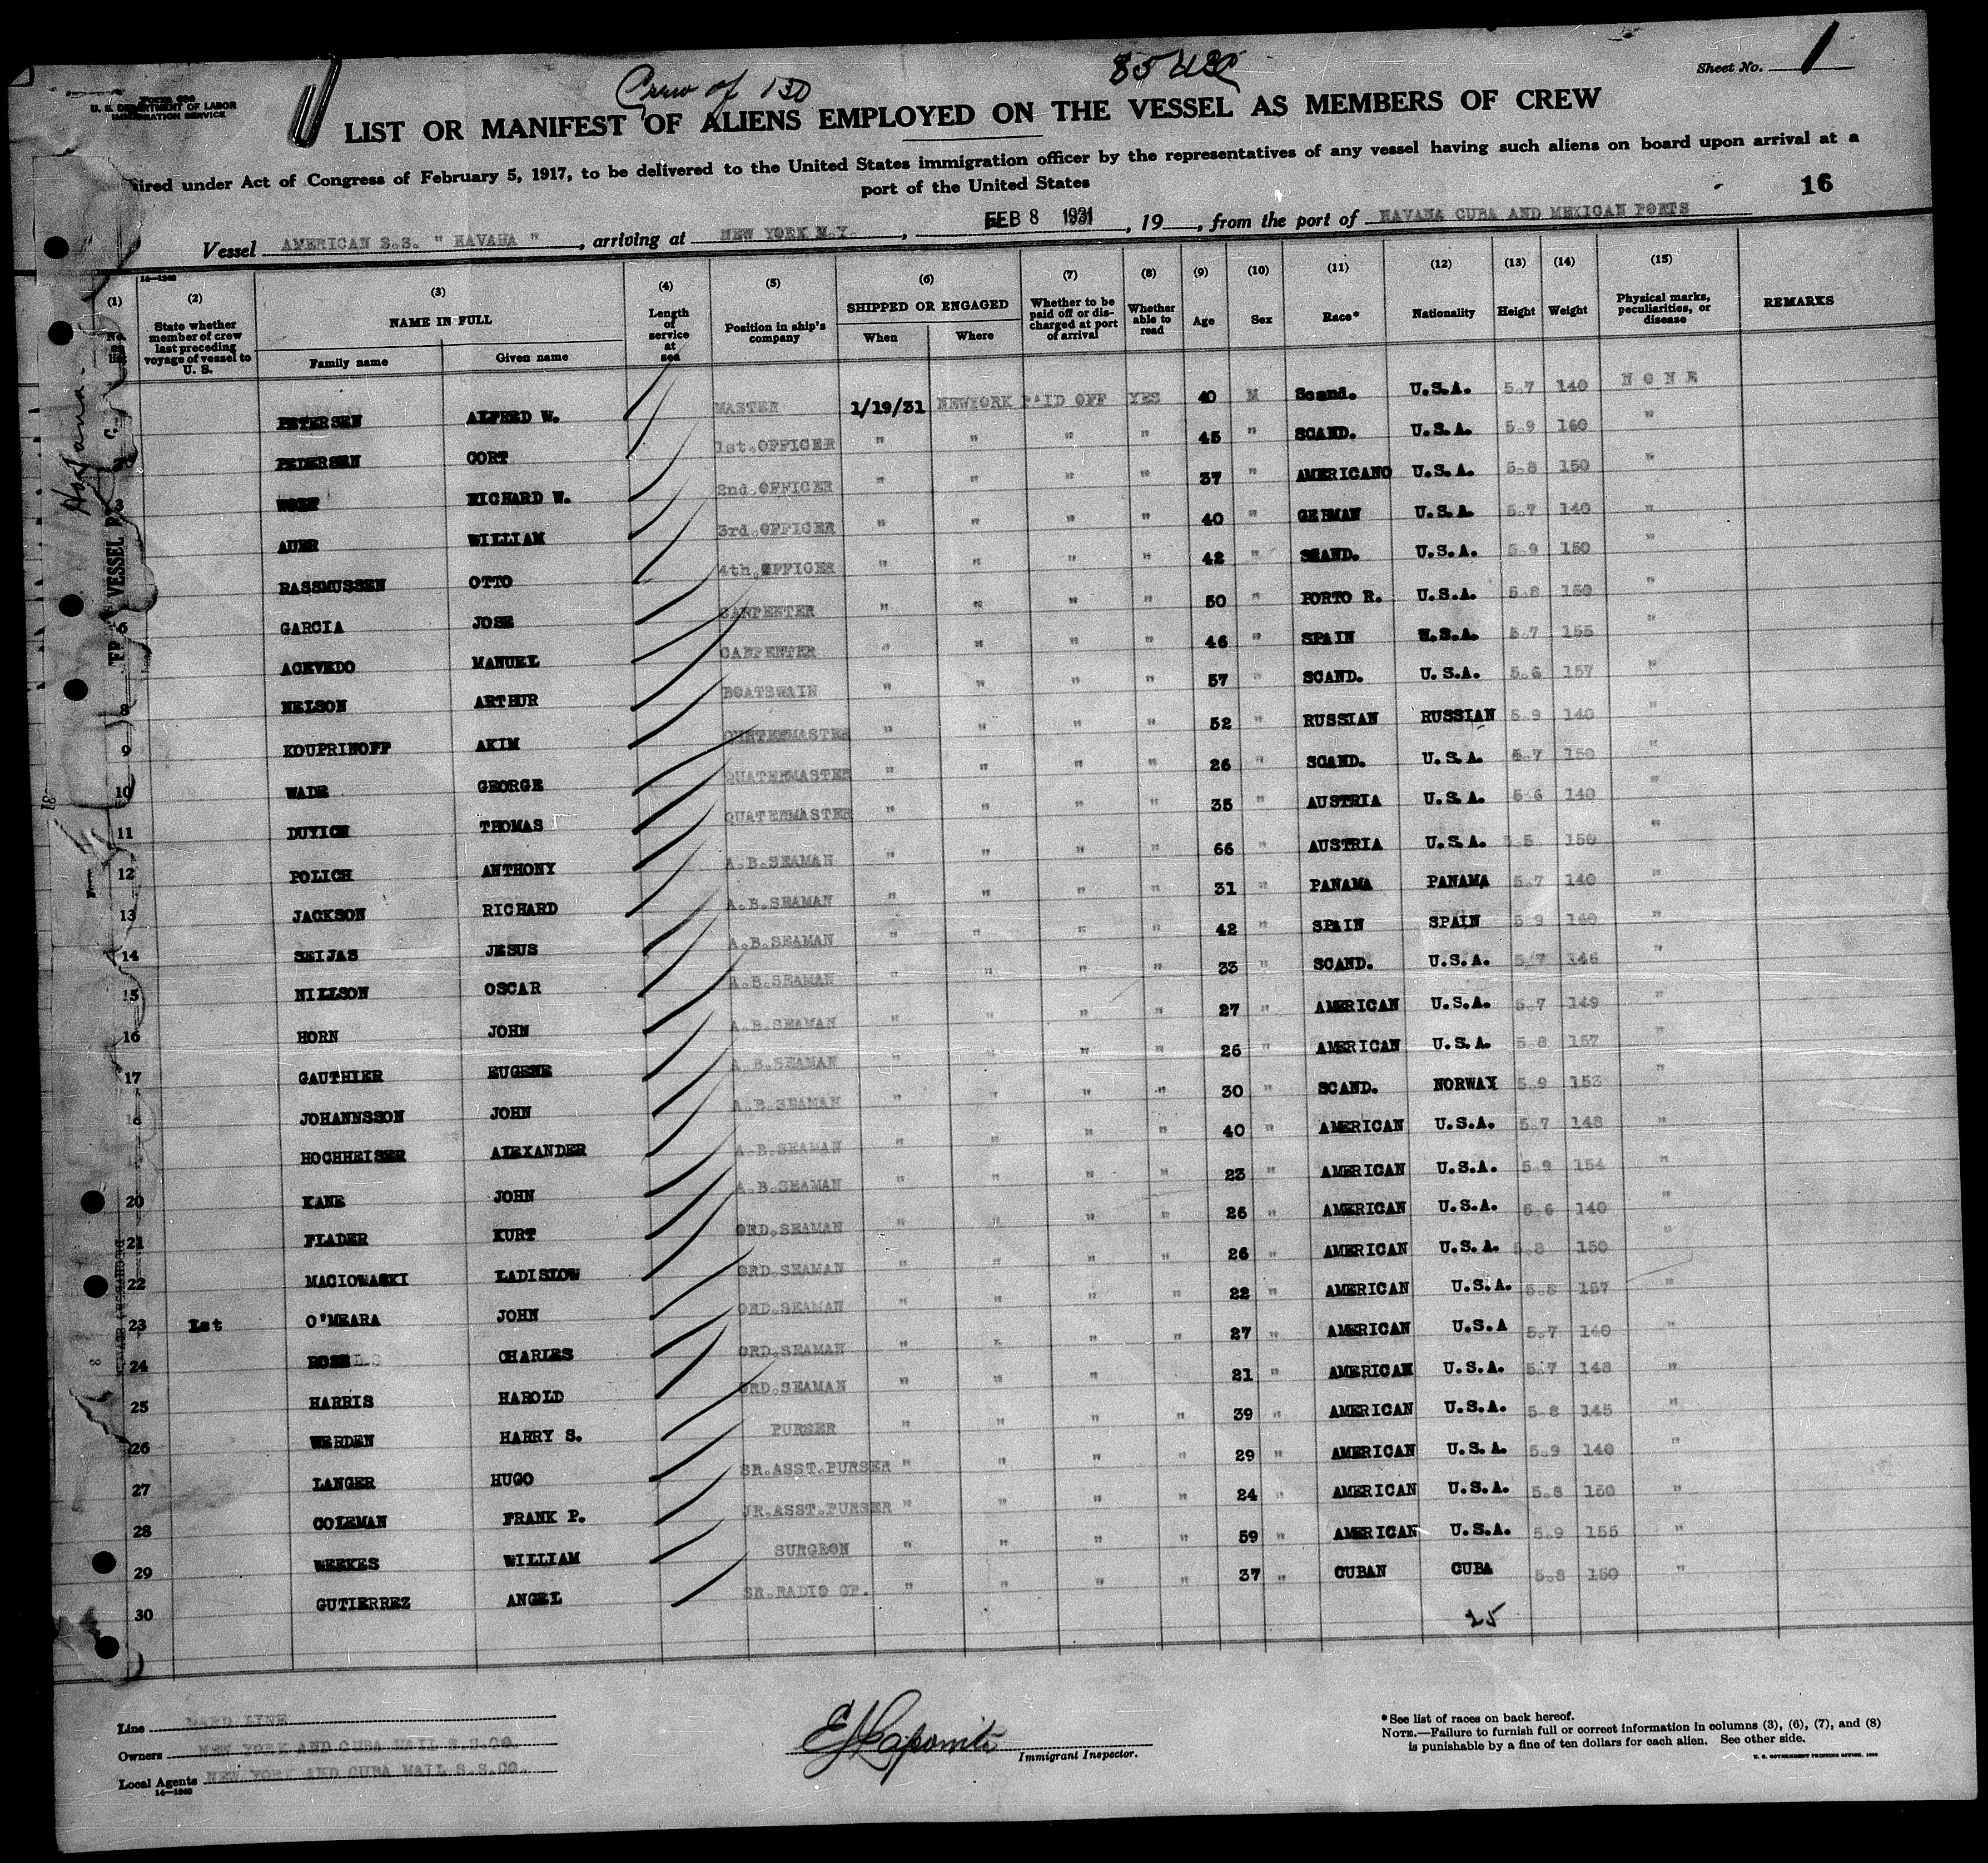 Crew of 130
85 USC
Sheet No. 1
U. S. DEPARTMENT OF LABOR
IMMIGRATION SERVICE
LIST OR MANIFEST OF ALIENS EMPLOYED ON THE VESSEL AS MEMBERS OF CREW
ired under Act of Congress of February 5, 1917, to be delivered to the United States immigration officer by the representatives of any vessel having such aliens on board upon arrival at a
port of the United States
16
Vessel AMERICAN S.S. " HAVANA ", arriving at NEW YORK N.Y., FEB 8 1931, 19 , from the port of HAVANA CUBA AND MEXICAN PORTS
14—1240
(1) (2) (3) (4) (5) (6) (7) (8) (9) (10) (11) (12) (13) (14) (15)
No. on list State whether member of crew last preceding voyage of vessel to U. S. NAME IN FULL Family name Given name Length of service at sea Position in ship's company SHIPPED OR ENGAGED When Where Whether to be paid off or discharged at port of arrival Whether able to read Age Sex Race* Nationality Height Weight Physical marks, peculiarities, or disease REMARKS
PETERSEN ALFRED W. MASTER 1/19/31 NEWYORK PAID OFF YES 40 M Scand. U.S.A. 5.7 140 NONE
PEDERSEN CORT 1st.OFFICER " " " " 45 " SCAND. U.S.A. 5.9 160 "
WORP RICHARD W. 2nd.OFFICER " " " " 37 " AMERICANO U.S.A. 5.8 150 "
AUER WILLIAM 3rd.OFFICER " " " " 40 " GERMAN U.S.A. 5.7 140 "
RASSMUSSEN OTTO 4th.OFFICER " " " " 42 " SCAND. U.S.A. 5.9 150 "
6 GARCIA JOSE CARPENTER " " " " 50 " PORTO R. U.S.A. 5.8 150 "
ACEVEDO MANUEL CARPENTER " " " " 46 " SPAIN U.S.A. 5.7 155 "
8 NELSON ARTHUR BOATSWAIN " " " " 57 " SCAND. U.S.A. 5.6 157 "
9 KOUPRINOFF AKIM QUATERMASTER " " " " 52 " RUSSIAN RUSSIAN 5.9 140 "
10 WADE GEORGE QUATERMASTER " " " " 26 " SCAND. U.S.A. 5.7 150 "
11 DUYICH THOMAS QUATERMASTER " " " " 35 " AUSTRIA U.S.A. 5.6 140 "
12 POLICH ANTHONY A.B.SEAMAN " " " " 66 " AUSTRIA U.S.A. 5.5 150 "
13 JACKSON RICHARD A.B.SEAMAN " " " " 31 " PANAMA PANAMA 5.7 140 "
14 SEIJAS JESUS A.B.SEAMAN " " " " 42 " SPAIN SPAIN 5.9 140 "
15 NILLSON OSCAR A.B.SEAMAN " " " " 33 " SCAND. U.S.A. 5.7 146 "
16 HORN JOHN A.B.SEAMAN " " " " 27 " AMERICAN U.S.A. 5.7 149 "
17 GAUTHIER EUGENE A.B.SEAMAN " " " " 26 " AMERICAN U.S.A. 5.8 157 "
18 JOHANNSSON JOHN A.B.SEAMAN " " " " 30 " SCAND. NORWAY 5.9 153 "
HOCHHEISER ALEXANDER A.B.SEAMAN " " " " 40 " AMERICAN U.S.A. 5.7 148 "
20 KANE JOHN A.B.SEAMAN " " " " 23 " AMERICAN U.S.A. 5.9 154 "
21 FLADER KURT ORD.SEAMAN " " " " 26 " AMERICAN U.S.A. 5.6 140 "
22 MACIOWASKI LADISLOW ORD.SEAMAN " " " " 26 " AMERICAN U.S.A. 5.8 150 "
23 1st O'MEARA JOHN ORD.SEAMAN " " " " 22 " AMERICAN U.S.A. 5.8 157 "
24 CHARLES ORD.SEAMAN " " " " 27 " AMERICAN U.S.A 5.7 140 "
25 HARRIS HAROLD ORD.SEAMAN " " " " 21 " AMERICAN U.S.A. 5.7 148 "
26 WERDEN HARRY S. PURSER " " " " 39 " AMERICAN U.S.A. 5.8 145 "
27 LANGER HUGO SR.ASST.PURSER " " " " 29 " AMERICAN U.S.A. 5.9 140 "
28 COLEMAN FRANK P. JR.ASST.PURSER " " " " 24 " AMERICAN U.S.A. 5.8 150 "
29 WEEKES WILLIAM SURGEON " " " " 59 " AMERICAN U.S.A. 5.9 155 "
30 GUTIERREZ ANGEL SR.RADIO OP. " " " " 37 " CUBAN CUBA 5.8 150 "
25
Line WARD LINE
Owners NEW YORK AND CUBA MAIL S.S.CO.
Local Agents NEW YORK AND CUBA MAIL S.S.CO.
14—1240
Immigrant Inspector.
*See list of races on back hereof.
NOTE.—Failure to furnish full or correct information in columns (3), (6), (7), and (8)
is punishable by a fine of ten dollars for each alien. See other side.
U. S. GOVERNMENT PRINTING OFFICE.